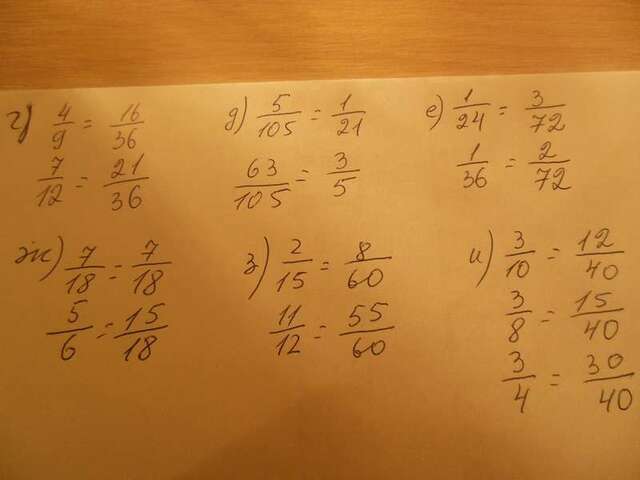 г) 4/9 = 16/36
7/12 = 21/36
д) 5/105 = 1/21
63/105 = 3/5
е) 1/24 = 3/72
1/36 = 2/72
ж) 7/18 = 7/18
5/6 = 15/18
з) 2/15 = 8/60
11/12 = 55/60
и) 3/10 = 12/40
3/8 = 15/40
3/4 = 30/40